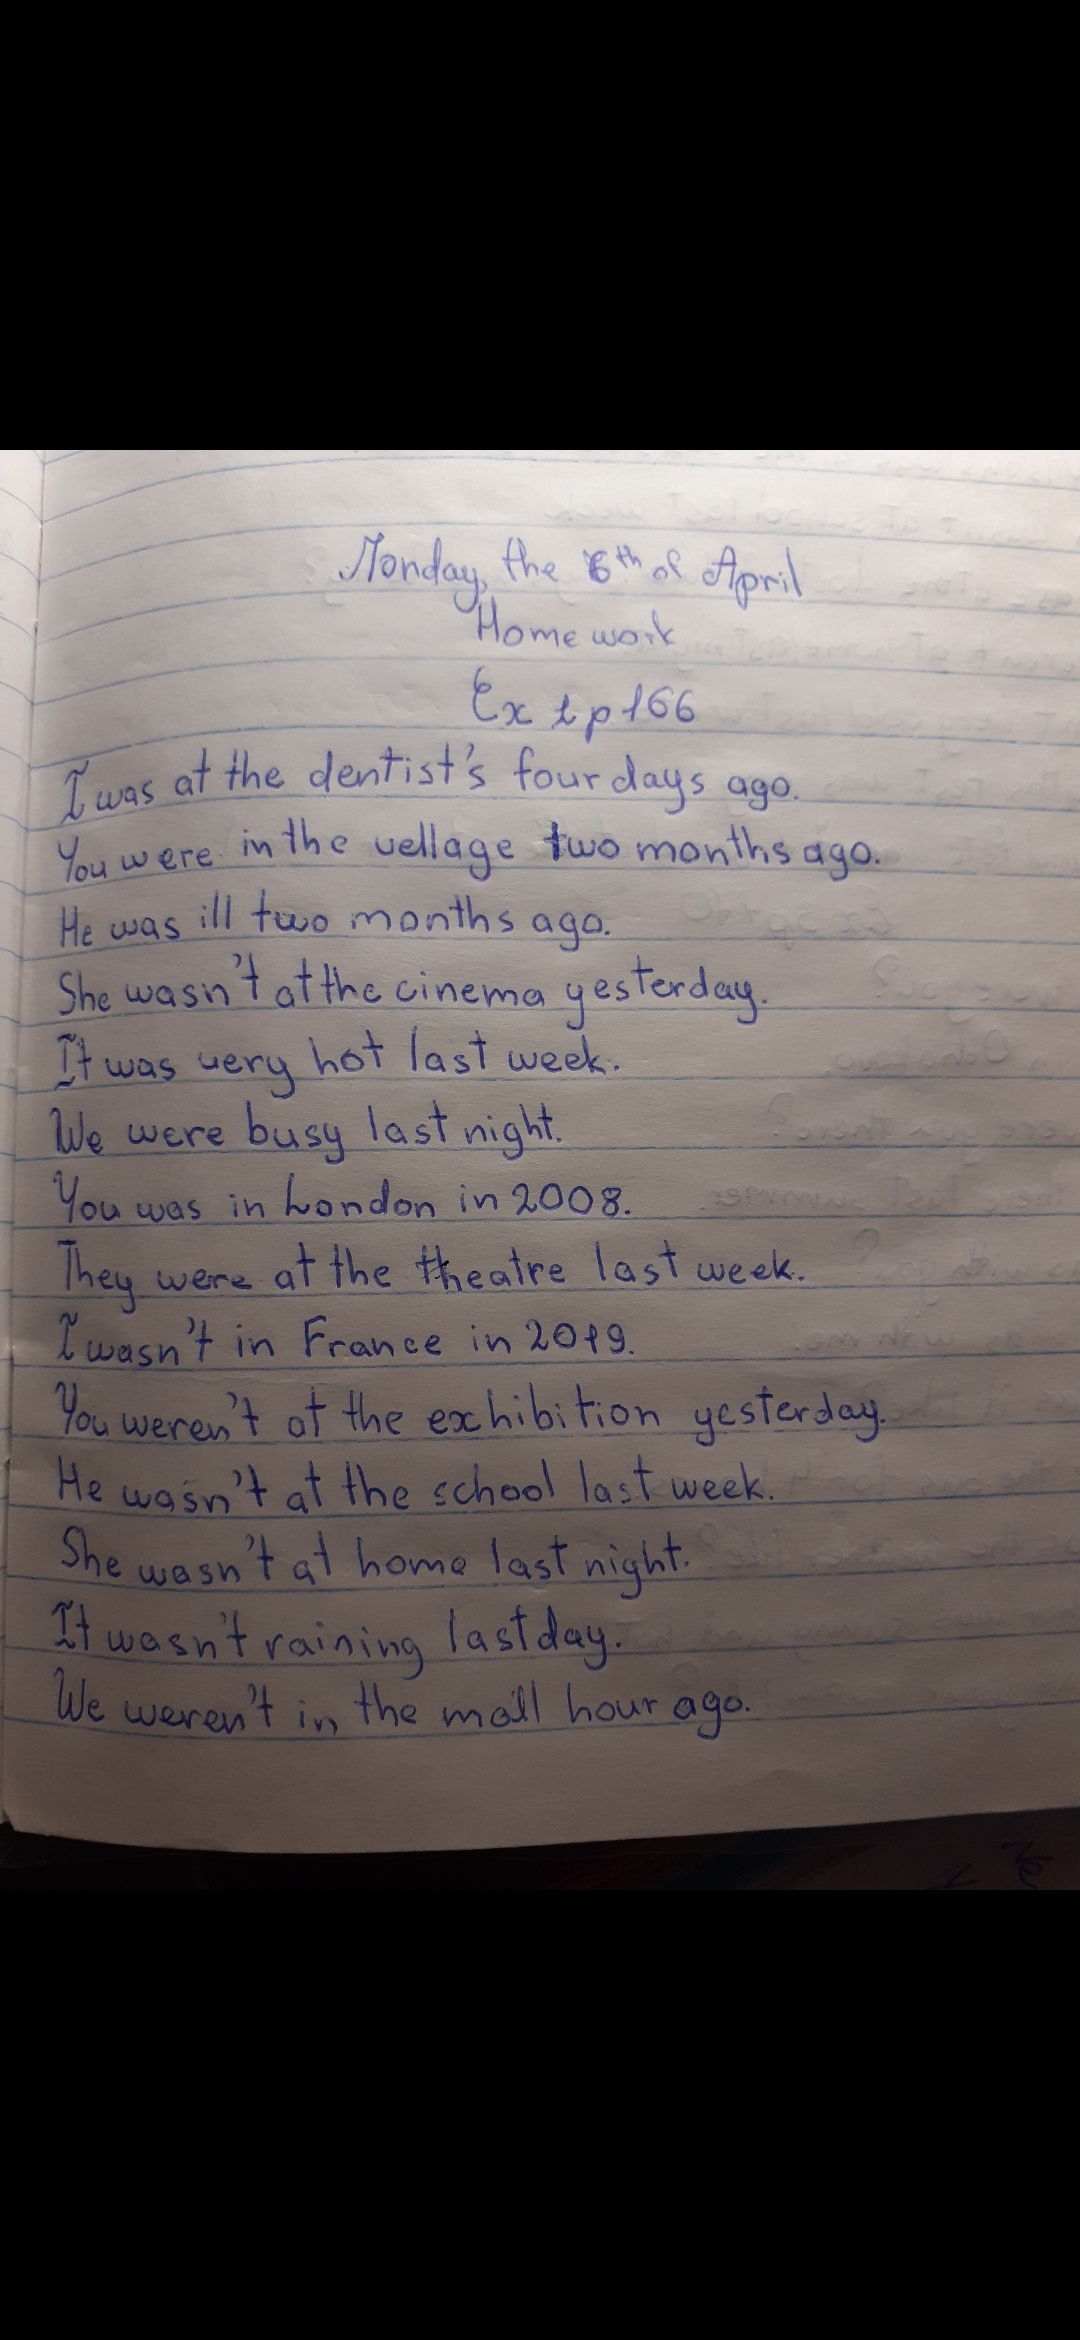 Monday, the 6th of April
Home work
Ex 1 p 166
I was at the dentist's four days ago.
You were in the vellage two months ago.
He was ill two months ago.
She wasn't at the cinema yesterday.
It was very hot last week.
We were busy last night.
You was in London in 2008.
They were at the theatre last week.
I wasn't in France in 2019.
You weren't at the exhibition yesterday.
He wasn't at the school last week.
She wasn't at home last night.
It wasn't raining last day.
We weren't in the mall hour ago.